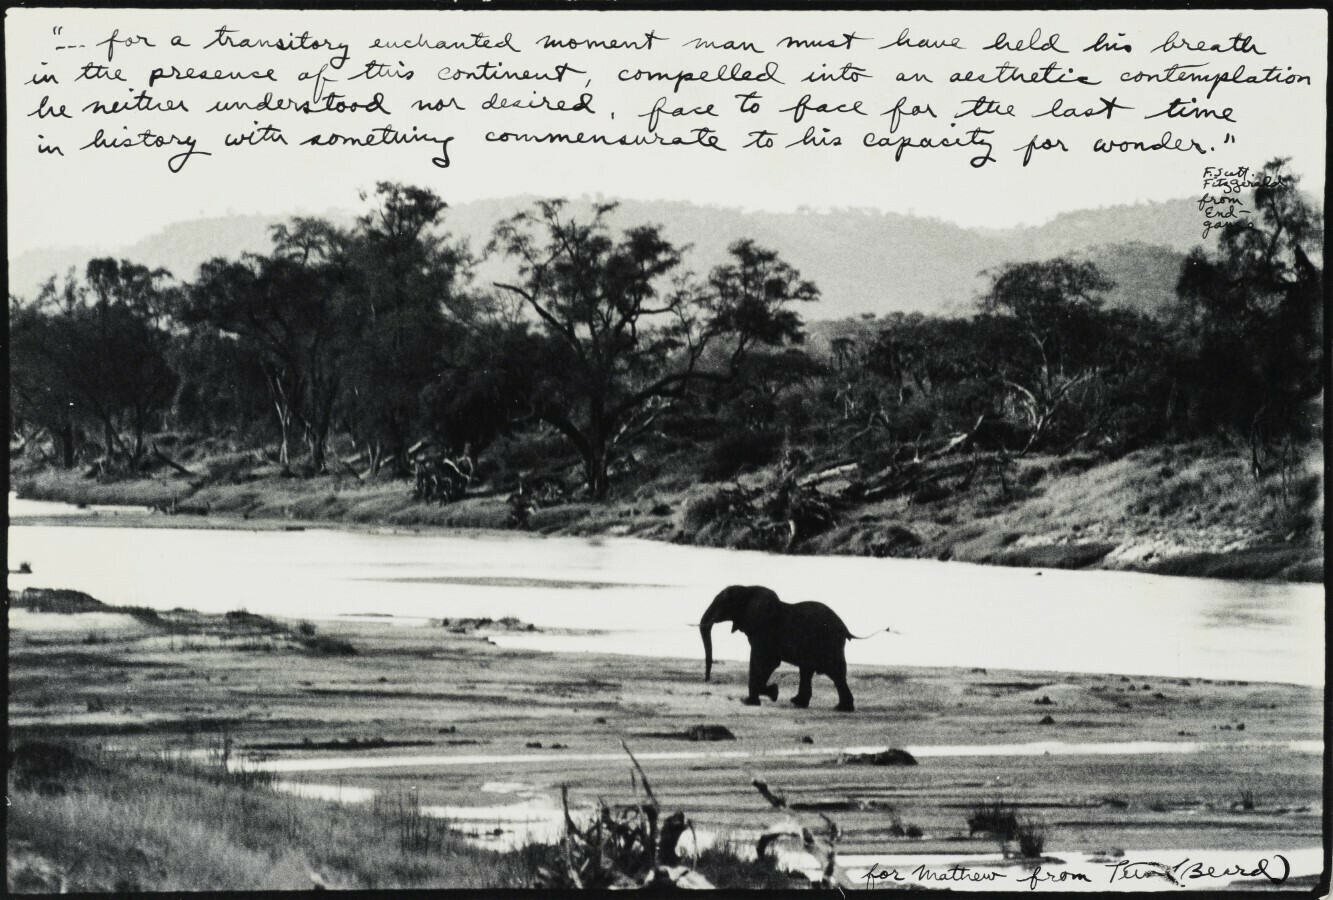 "... for a transitory enchanted moment man must have held his breath
in the presence of this continent, compelled into an aesthetic contemplation
he neither understood nor desired, face to face for the last time
in history with something commensurate to his capacity for wonder."
F. Scott.
Fitzgerald
from
End-
game
for Mathew from Peter (Beard)